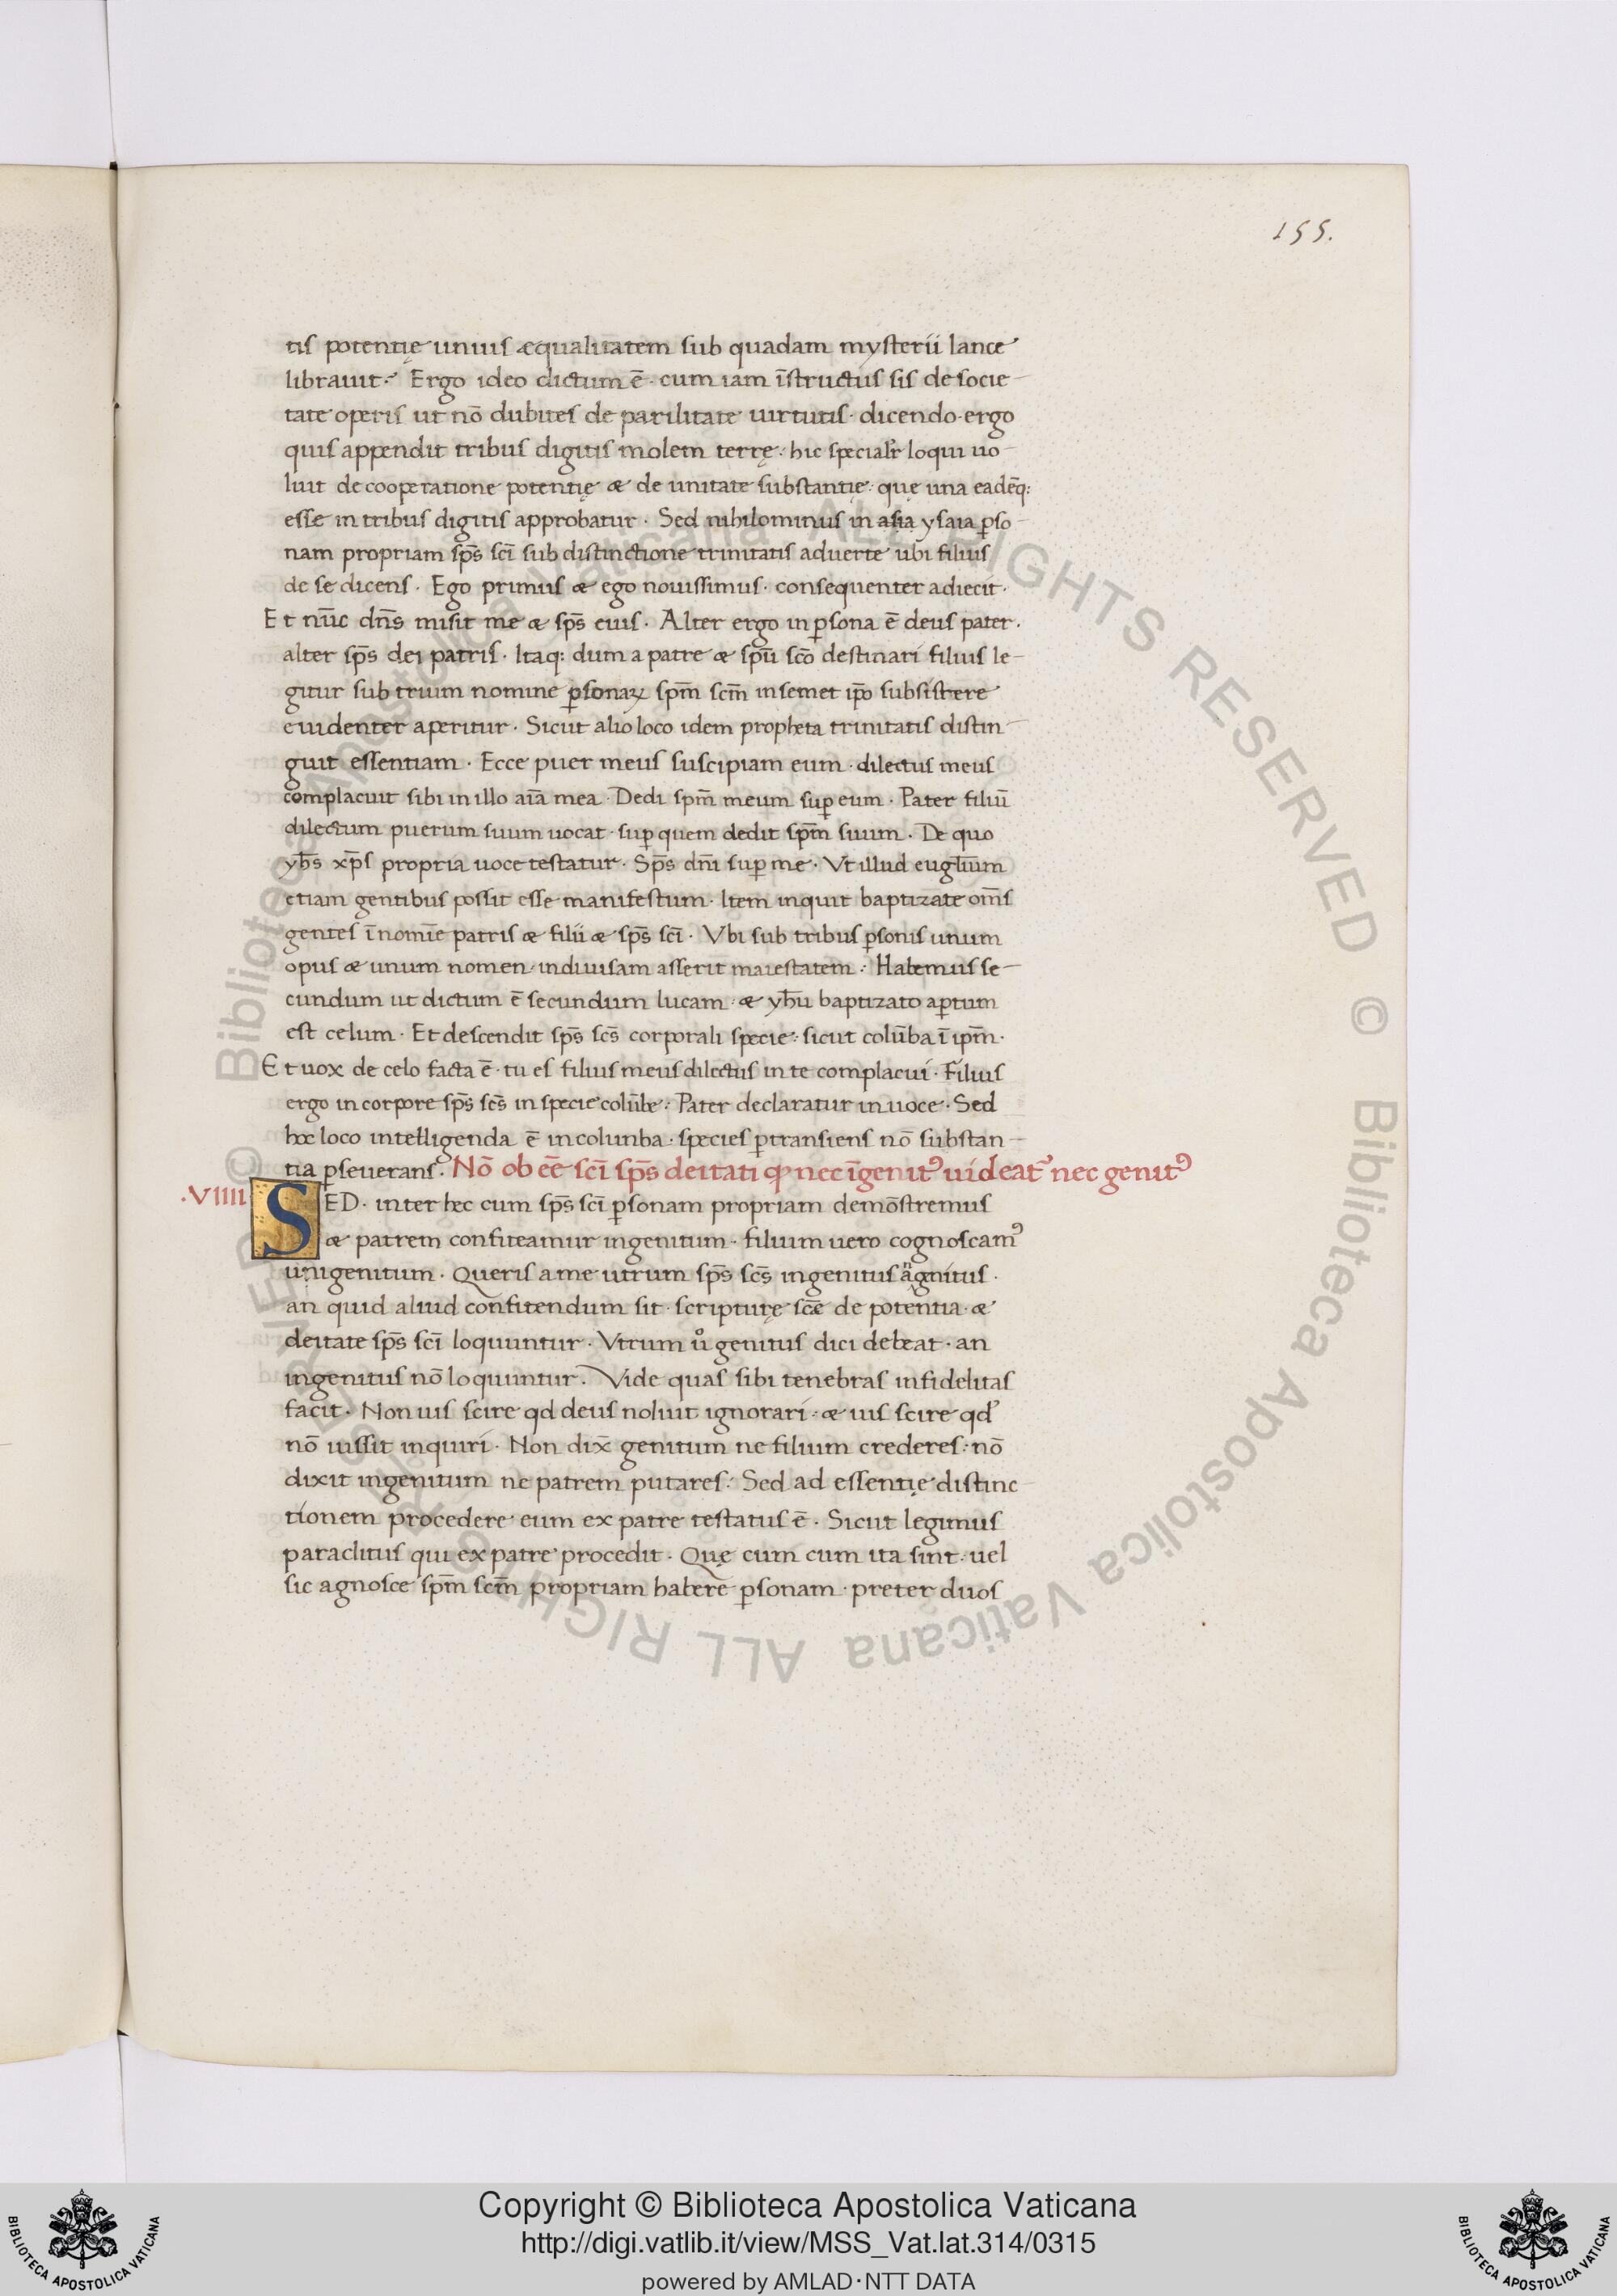 155.
tis potentię unius æqualitatem sub quadam mysterii lance
librauit. Ergo ideo dictum ē. cum iam īstructus sis de socie-
tate operis ut nō dubites de parilitate uirtutis. dicendo. ergo
quis appendit tribus digitis molem terrę. hic specialr̄ loqui uo-
luit de cooperatione potentię & de unitate substantię. quę una eadēq:
esse in tribus digitis approbatur. Sed nihilominus in asia ysaia ꝑso-
nam propriam sp̄s sc̄i sub distinctione trinitatis aduerte ubi filius
de se dicens. Ego primus & ego nouissimus. consequenter adiecit.
Et nūc dn̄s misit me & sp̄s eius. Alter ergo in ꝑsona ē deus pater.
alter sp̄s dei patris. Itaq: dum a patre & spū scō destinari filius le-
gitur sub trium nomine ꝑsonaꝝ sp̄m sc̄m in semet ip̄o subsistere
euidenter aperitur. Sicut alio loco idem propheta trinitatis distin-
guit essentiam. Ecce puer meus suscipiam eum. dilectus meus
complacuit sibi in illo aīa mea. Dedi sp̄m meum suꝑ eum. Pater filiū
dilectum puerum suum uocat. suꝑ quem dedit sp̄m suum. De quo
yh̄s xp̄s propria uoce testatur. Sp̄s dn̄i suꝑ me. Vt illud eugl̄ium
etiam gentibus possit esse manifestum. Item inquit baptizate om̄s
gentes ī nomīe patris & filii & sp̄s sc̄i. Vbi sub tribus ꝑsonis unum
opus & unum nomen. indiuisam asserit maiestatem. Habemus se-
cundum ut dictum ē secundum lucam. & yh̄u baptizato aꝑtum
est celum. Et descendit sp̄s sc̄s corporali specie. sicut colūba ī ip̄m.
Et uox de celo facta ē. tu es filius meus dilectus in te complacui. Filius
ergo in corpore sp̄s sc̄s in specie colūbe. Pater declaratur in uoce. Sed
hoc loco intelligenda ē in colunba. species ꝑtransiens nō substan-
tia ꝑseuerans. Nō ob eē sc̄i sp̄s deitati ꝙ nec īgenitꝰ uideat᷑ nec genitꝰ
.VIIII SED. inter hec cum sp̄s sc̄i ꝑsonam propriam demōstremus
& patrem confiteamur ingenitum. filium uero cognoscamꝰ
unigenitum. Queris a me utrum sp̄s sc̄s ingenitus aͣgnitus.
an quid aliud confitendum sit. scripturę scē de potentia. &
deitate sp̄s sc̄i loquuntur. Vtrum uͦ genitus dici debeat. an
ingenitus nō loquuntur. Vide quas sibi tenebras infidelitas
facit. Non uis scire qd deus noluit ignorari. & uis scire qd
nō iussit inquiri. Non dix̄ genitum ne filium crederes. nō
dixit ingenitum ne patrem putares. Sed ad essentię distinc-
tionem procedere eum ex patre testatus ē. Sicut legimus
paraclitus qui ex patre procedit. Quę cum cum ita sint. uel
sic agnosce sp̄m sc̄m propriam habere ꝑsonam. preter duos
© Biblioteca Apostolica Vaticana ALL RIGHTS RESERVED © Biblioteca Apostolica Vaticana ALL RIGHTS RESERVED
Copyright © Biblioteca Apostolica Vaticana
http://digi.vatlib.it/view/MSS_Vat.lat.314/0315
powered by AMLAD·NTT DATA
BIBLIOTECA APOSTOLICA VATICANA
BIBLIOTECA APOSTOLICA VATICANA